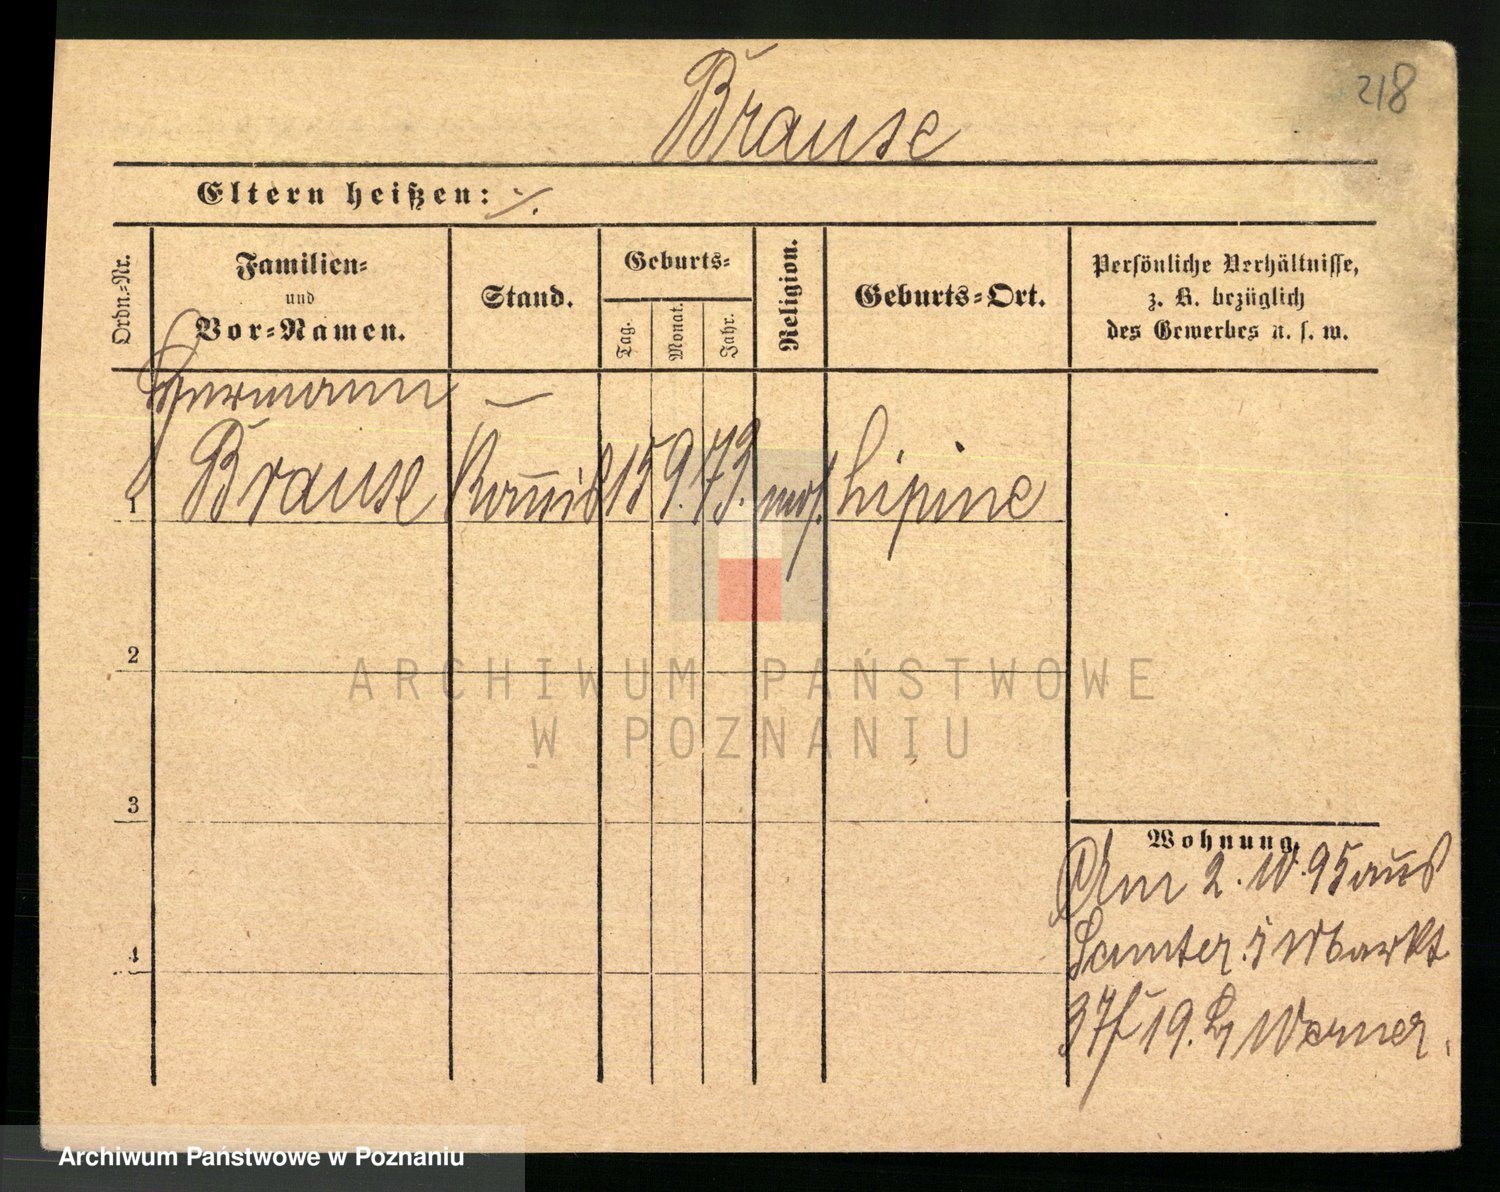 218
Brause
Eltern heißen: ./.
Ordn.-Nr.
Familien-
und
Vor-Namen.
Stand.
Geburts-
Tag.
Monat.
Jahr.
Religion.
Geburts-Ort.
Persönliche Verhältnisse,
z. B. bezüglich
des Gewerbes u. s. w.
Hermann
1 Brause Komis 15 9. 73. mos. Lipine
2
3
4
Wohnung.
Am 2. 10. 95 aus
Samter. Markt
37 19. Werner.
ARCHIWUM PAŃSTWOWE
W POZNANIU
Archiwum Państwowe w Poznaniu